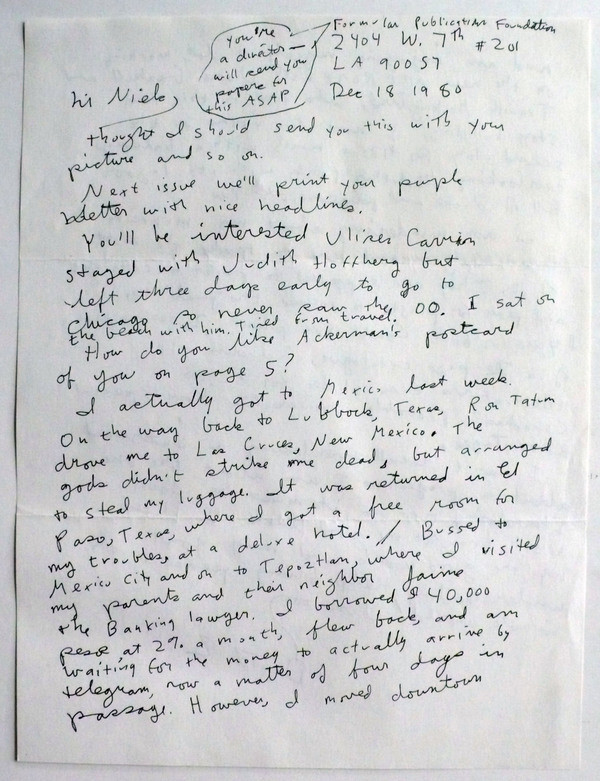 Formular Publication Foundation
2404 W. 7th #201
LA 90057
Dec 18 1980
you're
a director —
will send you
papers for
this ASAP
Hi Niels,
thought I should send you this with your
picture and so on.
Next issue we'll print your purple
better with nice headlines.
You'll be interested Ulises Carrion
stayed with Judith Hoffberg but
left three days early to go to
Chicago so never saw the OO. I sat on
the beach with him. Tired from travel.
How do you like Ackerman's postcard
of you on page 5?
I actually got to Mexico last week.
On the way back to Lubbock, Texas, Ron Tatum
drove me to Las Cruces, New Mexico. The
gods didn't strike me dead, but arranged
to steal my luggage. It was returned in El
Paso, Texas, where I got a free room for
my troubles, at a deluxe hotel. / Bussed to
Mexico City and on to Tepoztlan, where I visited
my parents and their neighbor Jaime
the Banking lawyer. I borrowed $40,000
pesos at 2% a month, flew back, and am
waiting for the money to actually arrive by
telegram, now a matter of four days in
passage. However, I moved downtown